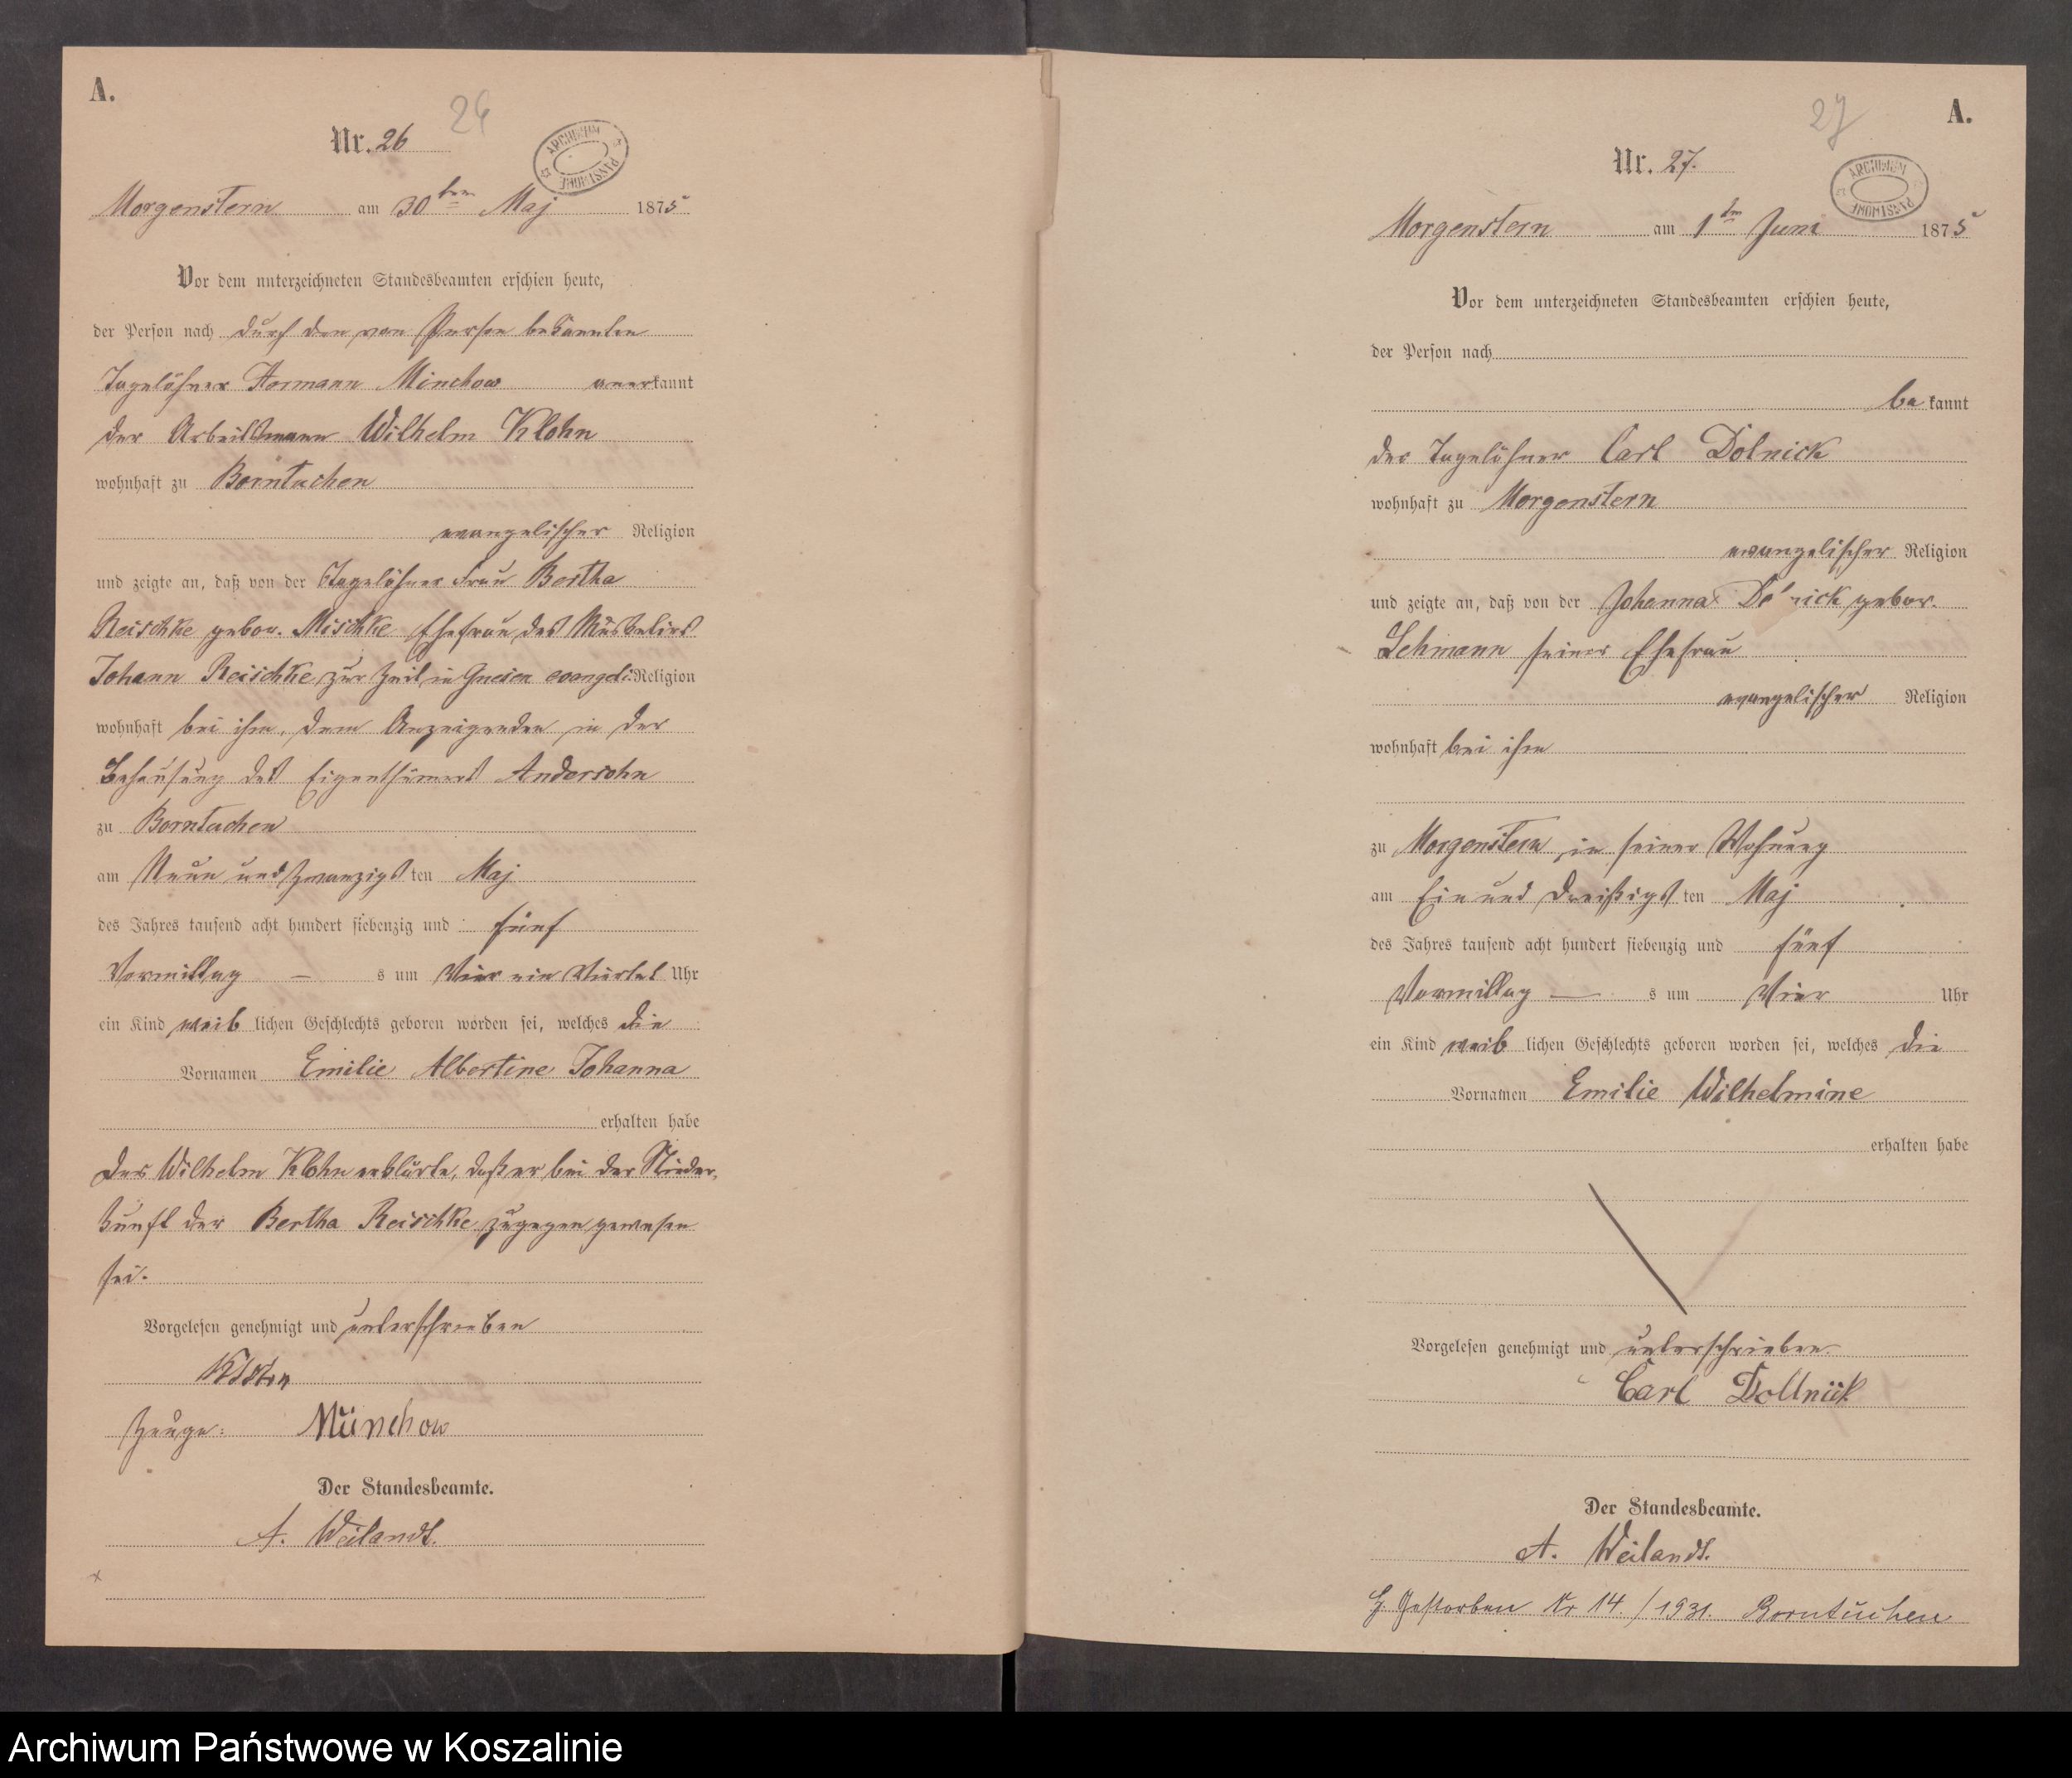 A.
26
Nr. 26
ARCHIWUM PAŃSTWOWE
Morgenstern am 30ten Maj 1875
Vor dem unterzeichneten Standesbeamten erschien heute,
der Person nach durch den von Person bekannten
Tagelöhner Hermann Münchow anerkannt
der Arbeitsmann Wilhelm Klohn
wohnhaft zu Borntuchen
evangelischer Religion
und zeigte an, daß von der Tagelöhner Frau Bertha
Reischke gebor. Mischke Ehefrau des Musketiers
Johann Reischke zur Zeit in Gnesen evangel: Religion
wohnhaft bei ihm, dem Anzeigenden in der
Behausung des Eigenthümers Andersohn
zu Borntuchen
am Neun und zwanzigsten Maj
des Jahres tausend acht hundert siebenzig und fünf
Vormittag — s um Vier ein Viertel Uhr
ein Kind weiblichen Geschlechts geboren worden sei, welches die
Vornamen Emilie Albertine Johanna
erhalten habe
Der Wilhelm Klohn erklärte, daß er bei der Nieder-
kunft der Bertha Reischke zugegen gewesen
sei.
Vorgelesen genehmigt und unterschrieben
Klohn
Zeuge: Münchow
Der Standesbeamte.
A. Weilandt.
A.
27
Nr. 27.
ARCHIWUM PAŃSTWOWE
Morgenstern am 1ten Juni 1875
Vor dem unterzeichneten Standesbeamten erschien heute,
der Person nach
bekannt
der Tagelöhner Carl Dolnick
wohnhaft zu Morgenstern
evangelischer Religion
und zeigte an, daß von der Johanna Dolnick gebor.
Lehmann seiner Ehefrau
evangelischer Religion
wohnhaft bei ihm
zu Morgenstern, in seiner Wohnung
am Ein und dreißigsten Maj
des Jahres tausend acht hundert siebenzig und fünf
Vormittag — s um Vier Uhr
ein Kind weiblichen Geschlechts geboren worden sei, welches die
Vornamen Emilie Wilhelmine
erhalten habe
Vorgelesen genehmigt und unterschrieben.
Carl Dollnick
Der Standesbeamte.
A. Weilandt.
Gestorben Nr 14./1931. Borntuchen
Archiwum Państwowe w Koszalinie